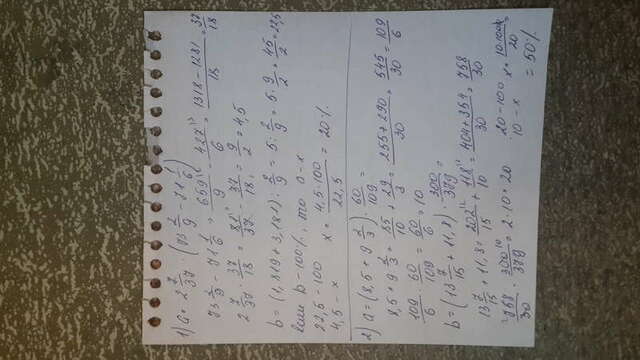 1) a = 2 7/37 · (73 2/9 - 71 1/6)
73 2/9 - 71 1/6 = 659/9 - 427/6 = 1318 - 1281/18 = 37/18
2 7/37 · 37/18 = 81/37 · 37/18 = 9/2 = 4,5
b = (1,819 + 3,181) : 2/9 = 5 : 2/9 = 5 · 9/2 = 45/2 = 22,5
Если b - 100%, то a - x
22,5 - 100
4,5 - x
x = 4,5·100/22,5 = 20%
2) a = (8,5 + 9 2/3) · 60/109 =
8,5 + 9 2/3 = 85/10 + 29/3 = 255 + 290/30 = 545/30 = 109/6
109/6 · 60/109 = 60/6 = 10
b = (13 7/15 + 11,8) · 300/379 =
13 7/15 + 11,8 = 202/15 + 118/10 = 404 + 354/30 = 758/30
758/30 · 300/379 = 2·10 = 20
20 - 100
10 - x
x = 10·100/20 = 50%